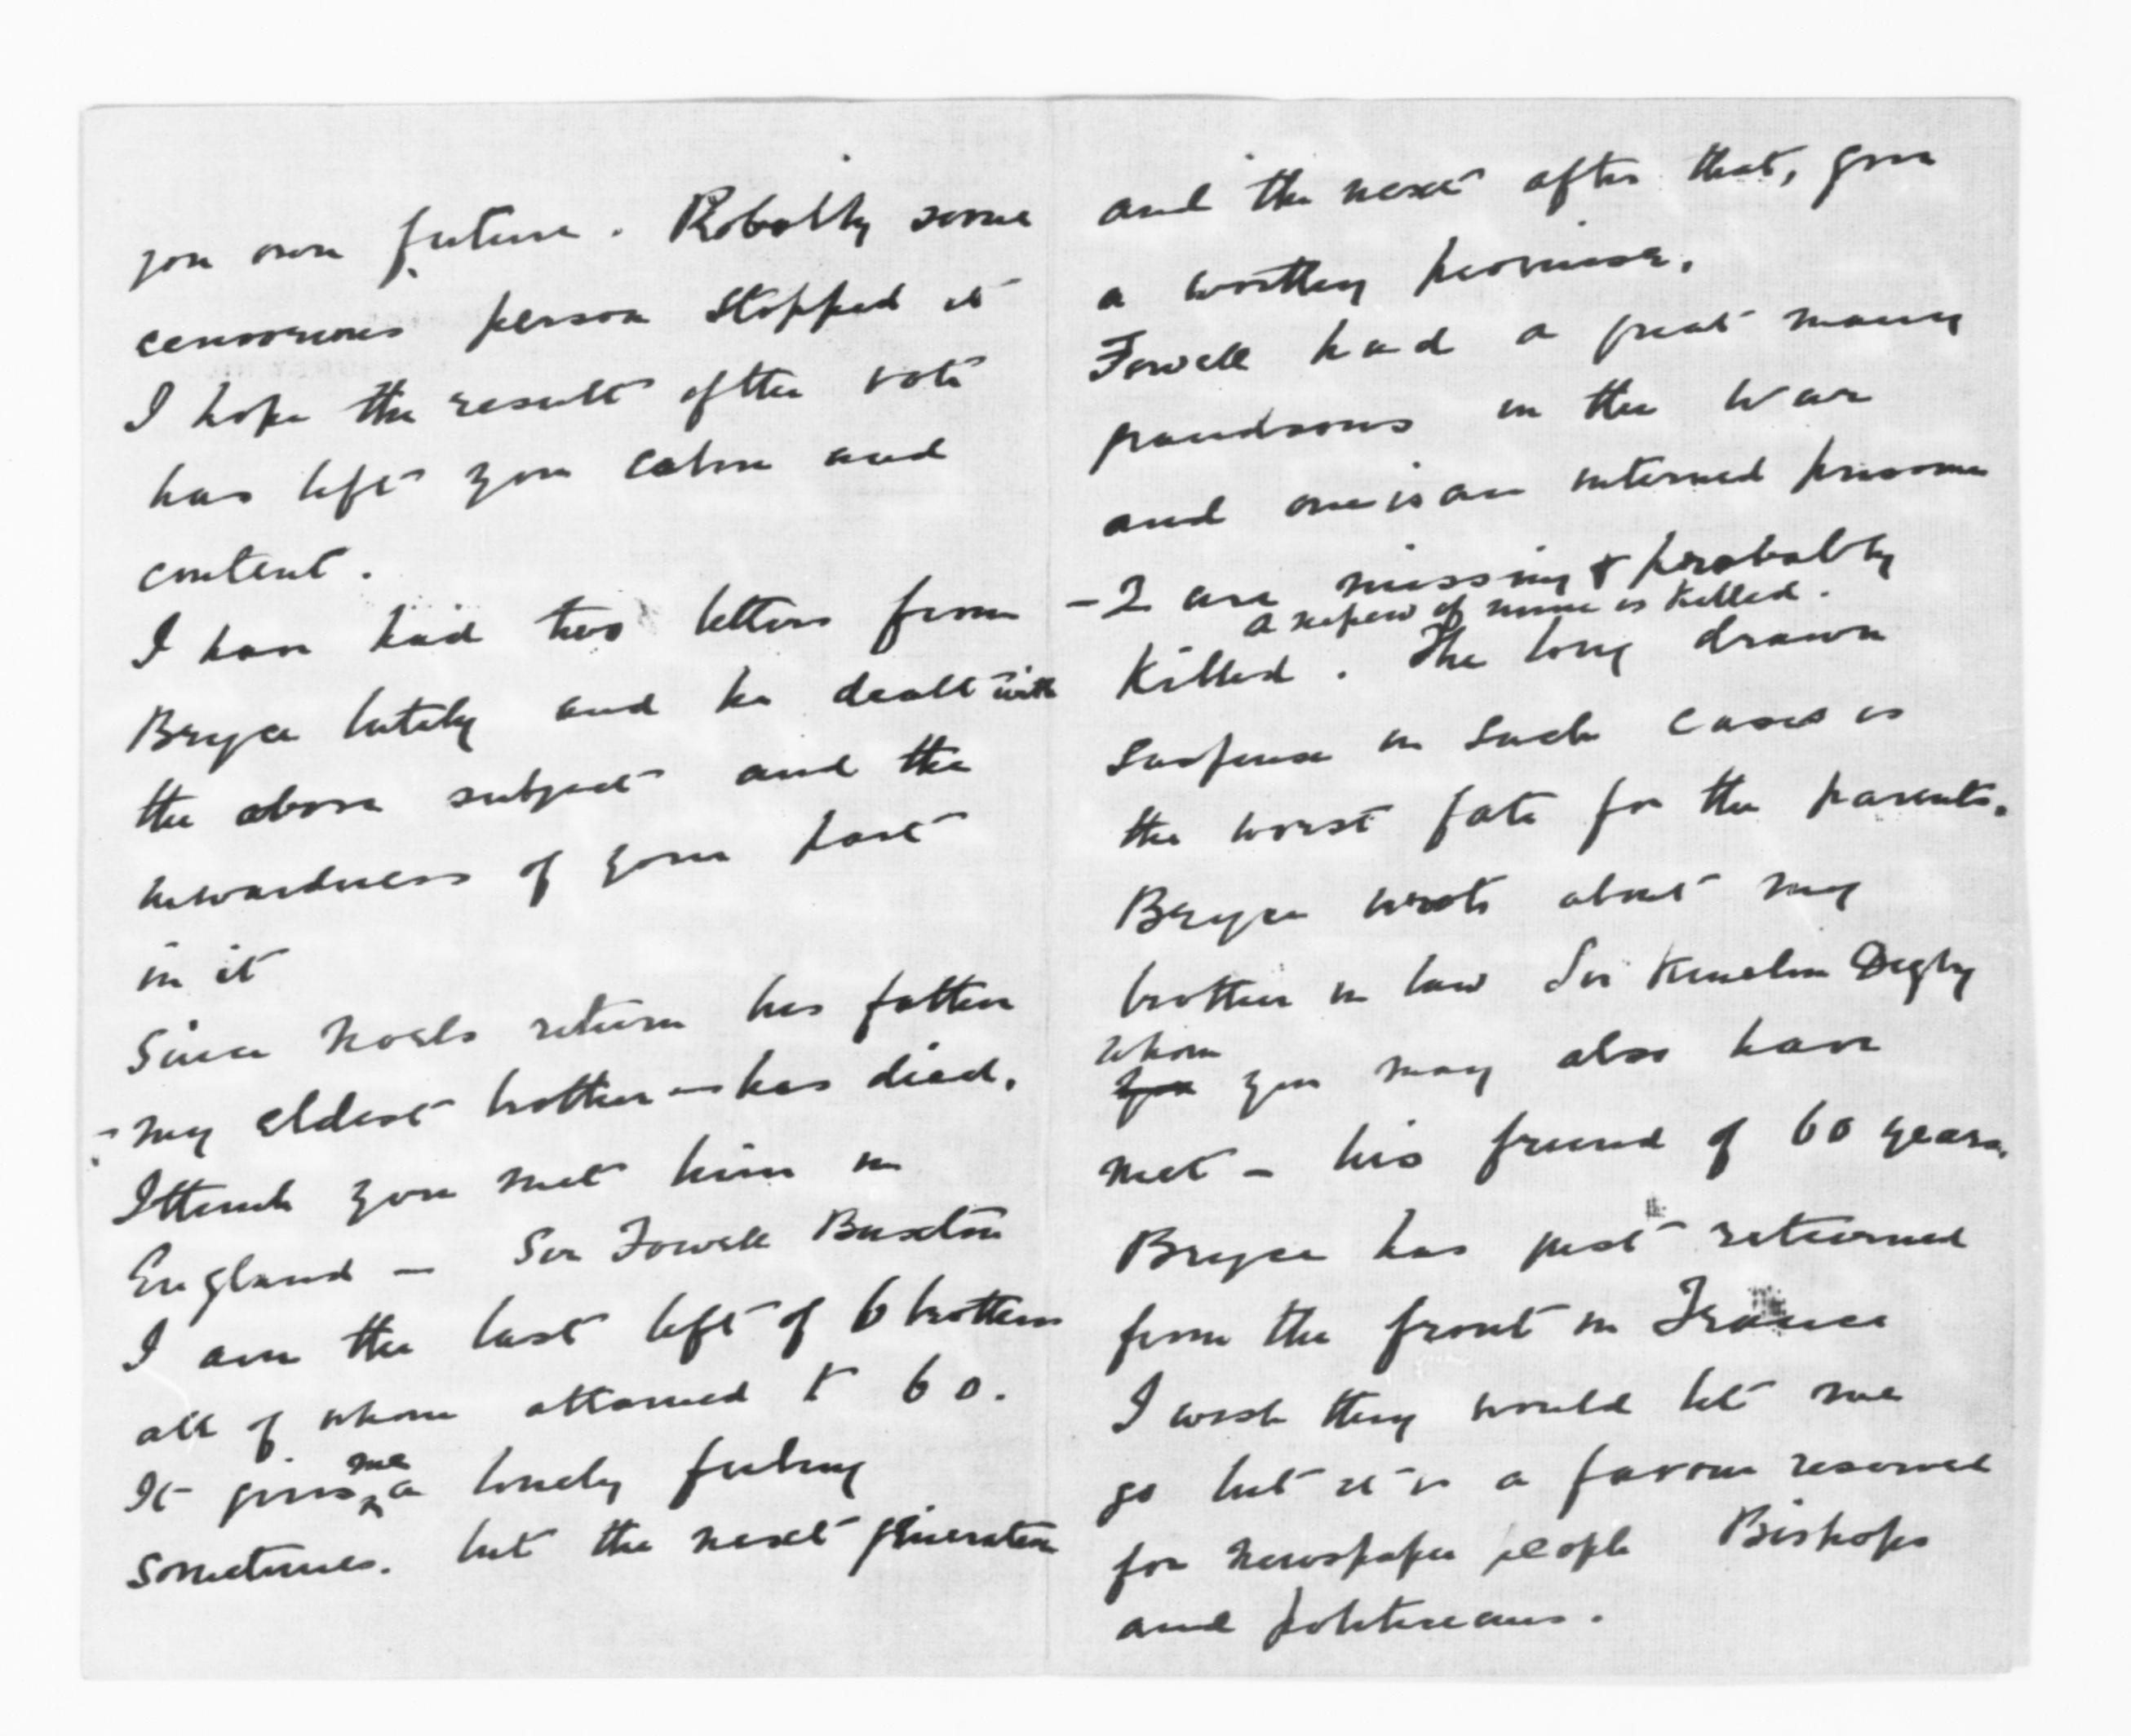 you own future. Probably some
censorious person stopped it
I hope the result of the vote
has left you calm and
content.
I have had two letters from
Bryce lately and he dealt with
the above subject and the
inwardness of your part
in it
Since Noels return his father
- my eldest brother - has died.
I think you met him in
England - Sir Fowell Buxton
I am the last left of 6 brothers
all of whom attained to 60.
It gives me a lonely feeling
sometimes. but the next generation
and the next after that, give
a worthy promise.
Fowell had a great many
grandsons in the War
and one is an interned prisoner
- 2 are missing & probably
a nephew of mine is killed.
Killed. The long drawn
suspense in such cases is
the worst fate for the parents.
Bryce wrote about my
brother in law Sir Kenelm Digby
whom
you you may also have
met - his friend of 60 years.
Bryce has just returned
from the front in France
I wish they would let me
go but it is a favour reserved
for newspaper people Bishops
and politicians.